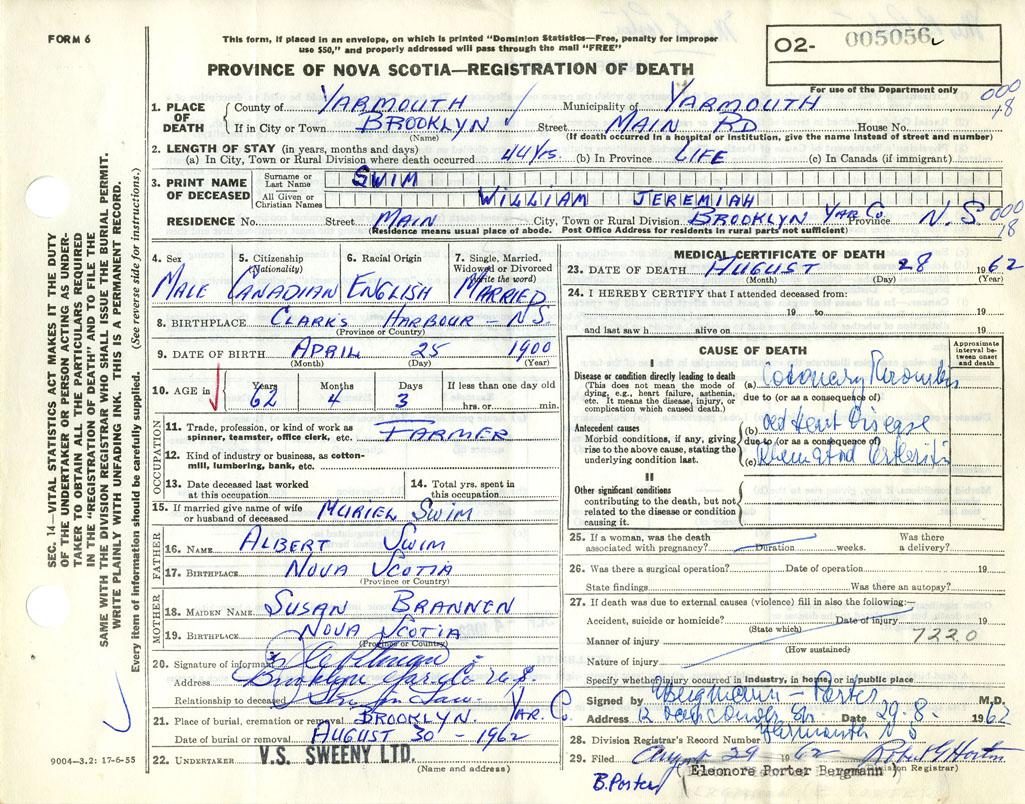 FORM 6
This form, if placed in an envelope, on which is printed "Dominion Statistics—Free, penalty for improper
use $50," and properly addressed will pass through the mail "FREE"
O2- 005056
PROVINCE OF NOVA SCOTIA—REGISTRATION OF DEATH
For use of the Department only
000
18
1. PLACE OF DEATH
County of YARMOUTH Municipality of YARMOUTH
If in City or Town BROOKLYN Street MAIN RD House No.
(Name) (If death occurred in a hospital or institution, give the name instead of street and number)
2. LENGTH OF STAY (in years, months and days)
(a) In City, Town or Rural Division where death occurred 44 Yrs. (b) In Province LIFE (c) In Canada (if immigrant)
3. PRINT NAME OF DECEASED
Surname or Last Name SWIM
All Given or Christian Names WILLIAM JEREMIAH
RESIDENCE No. Street MAIN City, Town or Rural Division BROOKLYN YAR. CO Province N. S.
000
18
(Residence means usual place of abode. Post Office Address for residents in rural parts not sufficient)
4. Sex
MALE
5. Citizenship (Nationality)
CANADIAN
6. Racial Origin
ENGLISH
7. Single, Married, Widowed or Divorced (Write the word)
MARRIED
8. BIRTHPLACE CLARK'S HARBOUR - N.S.
(Province or Country)
9. DATE OF BIRTH APRIL 25 1900
(Month) (Day) (Year)
10. AGE in
Years Months Days If less than one day old
62 4 3 hrs. or min.
OCCUPATION
11. Trade, profession, or kind of work as spinner, teamster, office clerk, etc. FARMER
12. Kind of industry or business, as cotton-mill, lumbering, bank, etc.
13. Date deceased last worked at this occupation
14. Total yrs. spent in this occupation
15. If married give name of wife or husband of deceased MURIEL SWIM
FATHER
16. NAME ALBERT SWIM
17. BIRTHPLACE NOVA SCOTIA
(Province or Country)
MOTHER
18. MAIDEN NAME SUSAN BRANNEN
19. BIRTHPLACE NOVA SCOTIA
(Province or Country)
20. Signature of informant
Address Brooklyn Yar. Co N.S.
Relationship to deceased
21. Place of burial, cremation or removal BROOKLYN. YAR. C.
Date of burial or removal AUGUST 30 - 1962
22. UNDERTAKER V.S. SWEENY LTD.
(Name and address)
9004—3.2: 17-6-55
MEDICAL CERTIFICATE OF DEATH
23. DATE OF DEATH AUGUST 28 1962
(Month) (Day) (Year)
24. I HEREBY CERTIFY that I attended deceased from:
19 to 19
and last saw h alive on 19
CAUSE OF DEATH
Approximate interval between onset and death
I
Disease or condition directly leading to death
(This does not mean the mode of dying, e.g., heart failure, asthenia, etc. It means the disease, injury, or complication which caused death.)
(a) Coronary Thrombosis
due to (or as a consequence of)
Antecedent causes
Morbid conditions, if any, giving rise to the above cause, stating the underlying condition last.
(b) old Heart Disease
due to (or as a consequence of)
(c) Rheumatoid Arthritis
II
Other significant conditions
contributing to the death, but not related to the disease or condition causing it.
25. If a woman, was the death associated with pregnancy? Duration weeks. Was there a delivery?
26. Was there a surgical operation? Date of operation 19
State findings Was there an autopsy?
27. If death was due to external causes (violence) fill in also the following:—
Accident, suicide or homicide? Date of injury 19
(State which)
7220
Manner of injury
(How sustained)
Nature of injury
Specify whether injury occurred in industry, in home, or in public place
Signed by EBergmann - Porter M.D.
Address Date 29-8- 1962
Yarmouth N S
28. Division Registrar's Record Number
29. Filed August 29 1962 Robert G Horton
(Division Registrar)
B. Porter
(Eleonore Porter Bergmann)
SEC. 14—VITAL STATISTICS ACT MAKES IT THE DUTY
OF THE UNDERTAKER OR PERSON ACTING AS UNDER-
TAKER TO OBTAIN ALL THE PARTICULARS REQUIRED
IN THE "REGISTRATION OF DEATH" AND TO FILE THE
SAME WITH THE DIVISION REGISTRAR WHO SHALL ISSUE THE BURIAL PERMIT.
WRITE PLAINLY WITH UNFADING INK. THIS IS A PERMANENT RECORD.
Every item of information should be carefully supplied. (See reverse side for instructions.)